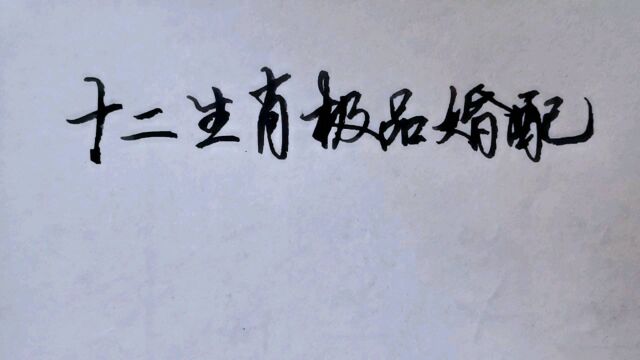 十二生肖极品婚配